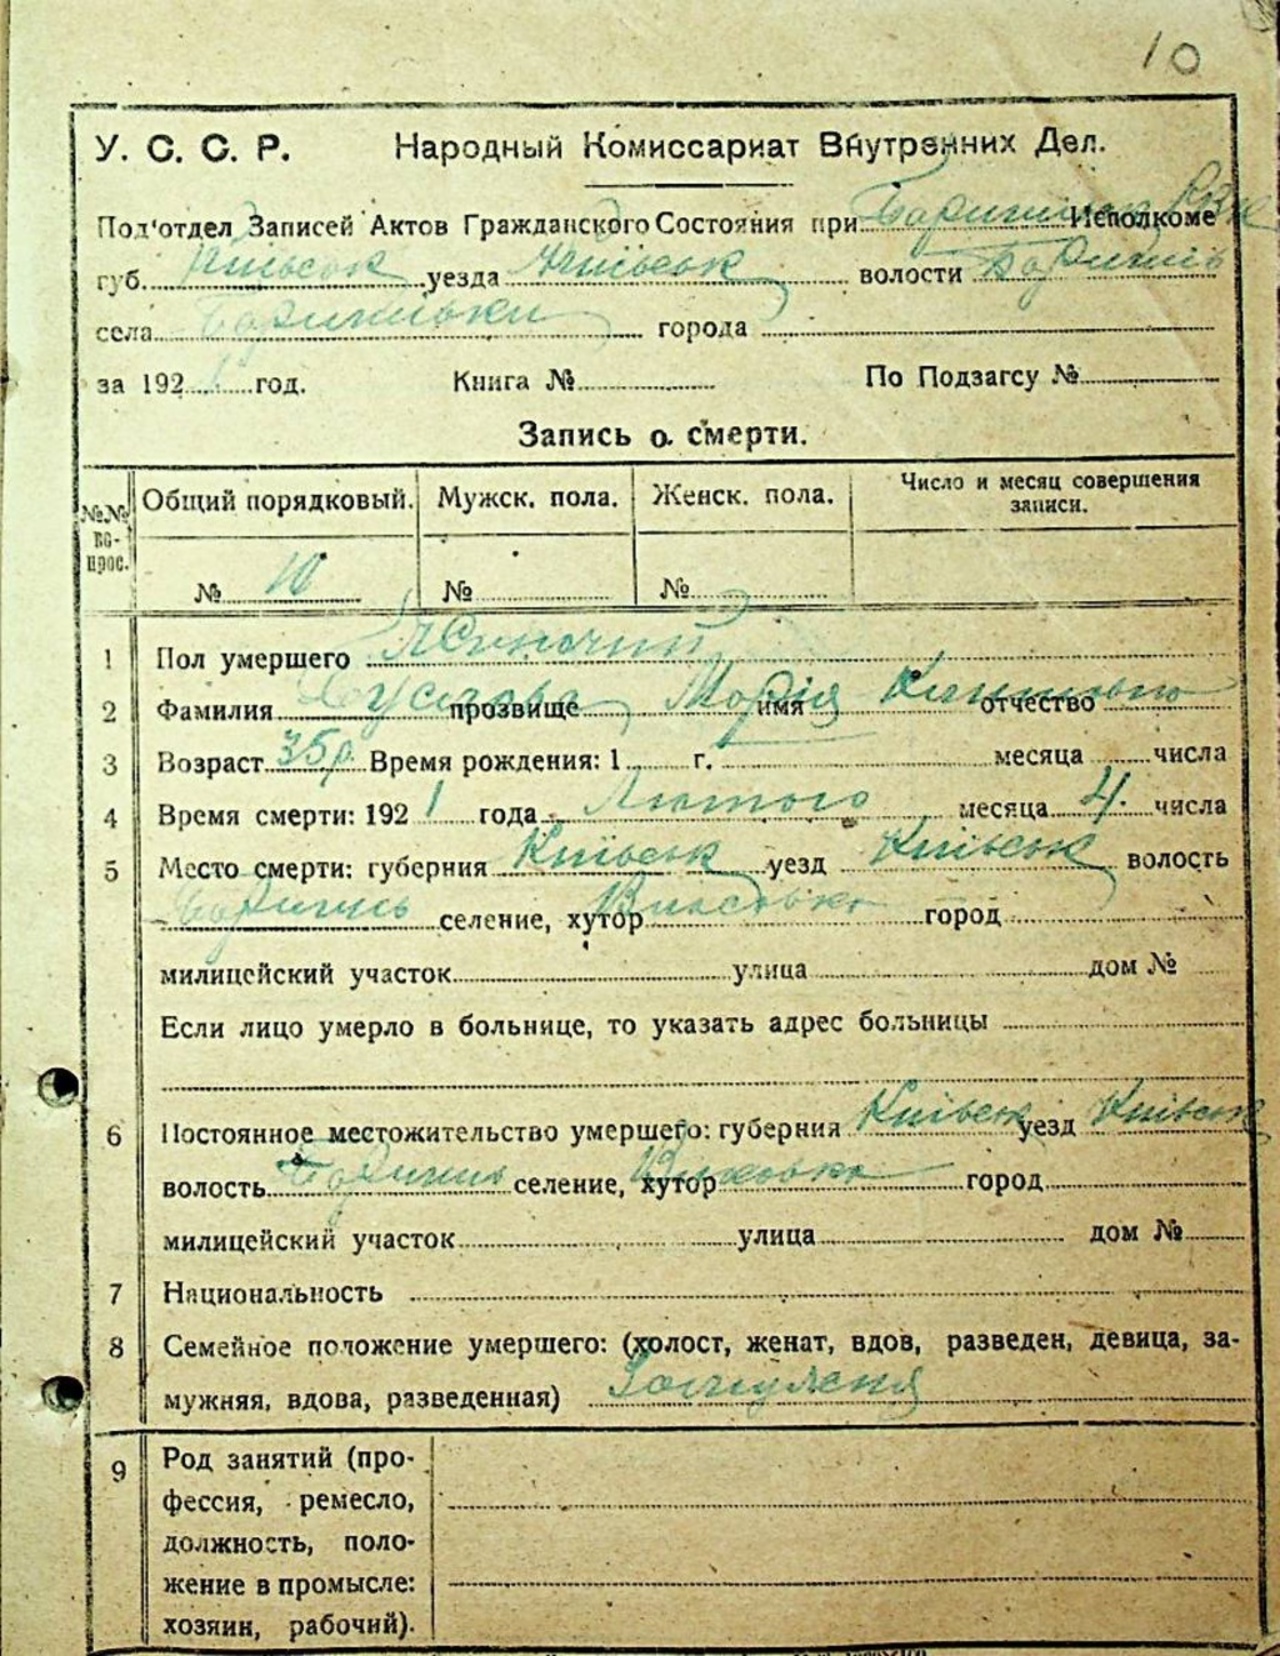 10
У. С. С. Р. Народный Комиссариат Внутренних Дел.
Под'отдел Записей Актов Гражданского Состояния при Исполкоме
губ. Київськ уезда Київськ волости Баришпіль
села города
за 192 1 год. Книга № По Подзагсу №
Запись о смерти.
№№ вопрос. Общий порядковый. Мужск. пола. Женск. пола. Число и месяц совершения записи.
№ 10 № №
1 Пол умершего Жіночий
2 Фамилия прозвище Марія имя отчество
3 Возраст 35 р. Время рождения: 1 г. месяца числа
4 Время смерти: 192 1 года Лютого месяца 4. числа
5 Место смерти: губерния Київськ уезд Київськ волость
селение, хутор город
милицейский участок улица дом №
Если лицо умерло в больнице, то указать адрес больницы
6 Постоянное местожительство умершего: губерния Київськ уезд Київськ
волость селение, хутор город
милицейский участок улица дом №
7 Национальность
8 Семейное положение умершего: (холост, женат, вдов, разведен, девица, за-
мужняя, вдова, разведенная) Замужня
9 Род занятий (про-
фессия, ремесло,
должность, поло-
жение в промысле:
хозяин, рабочий).